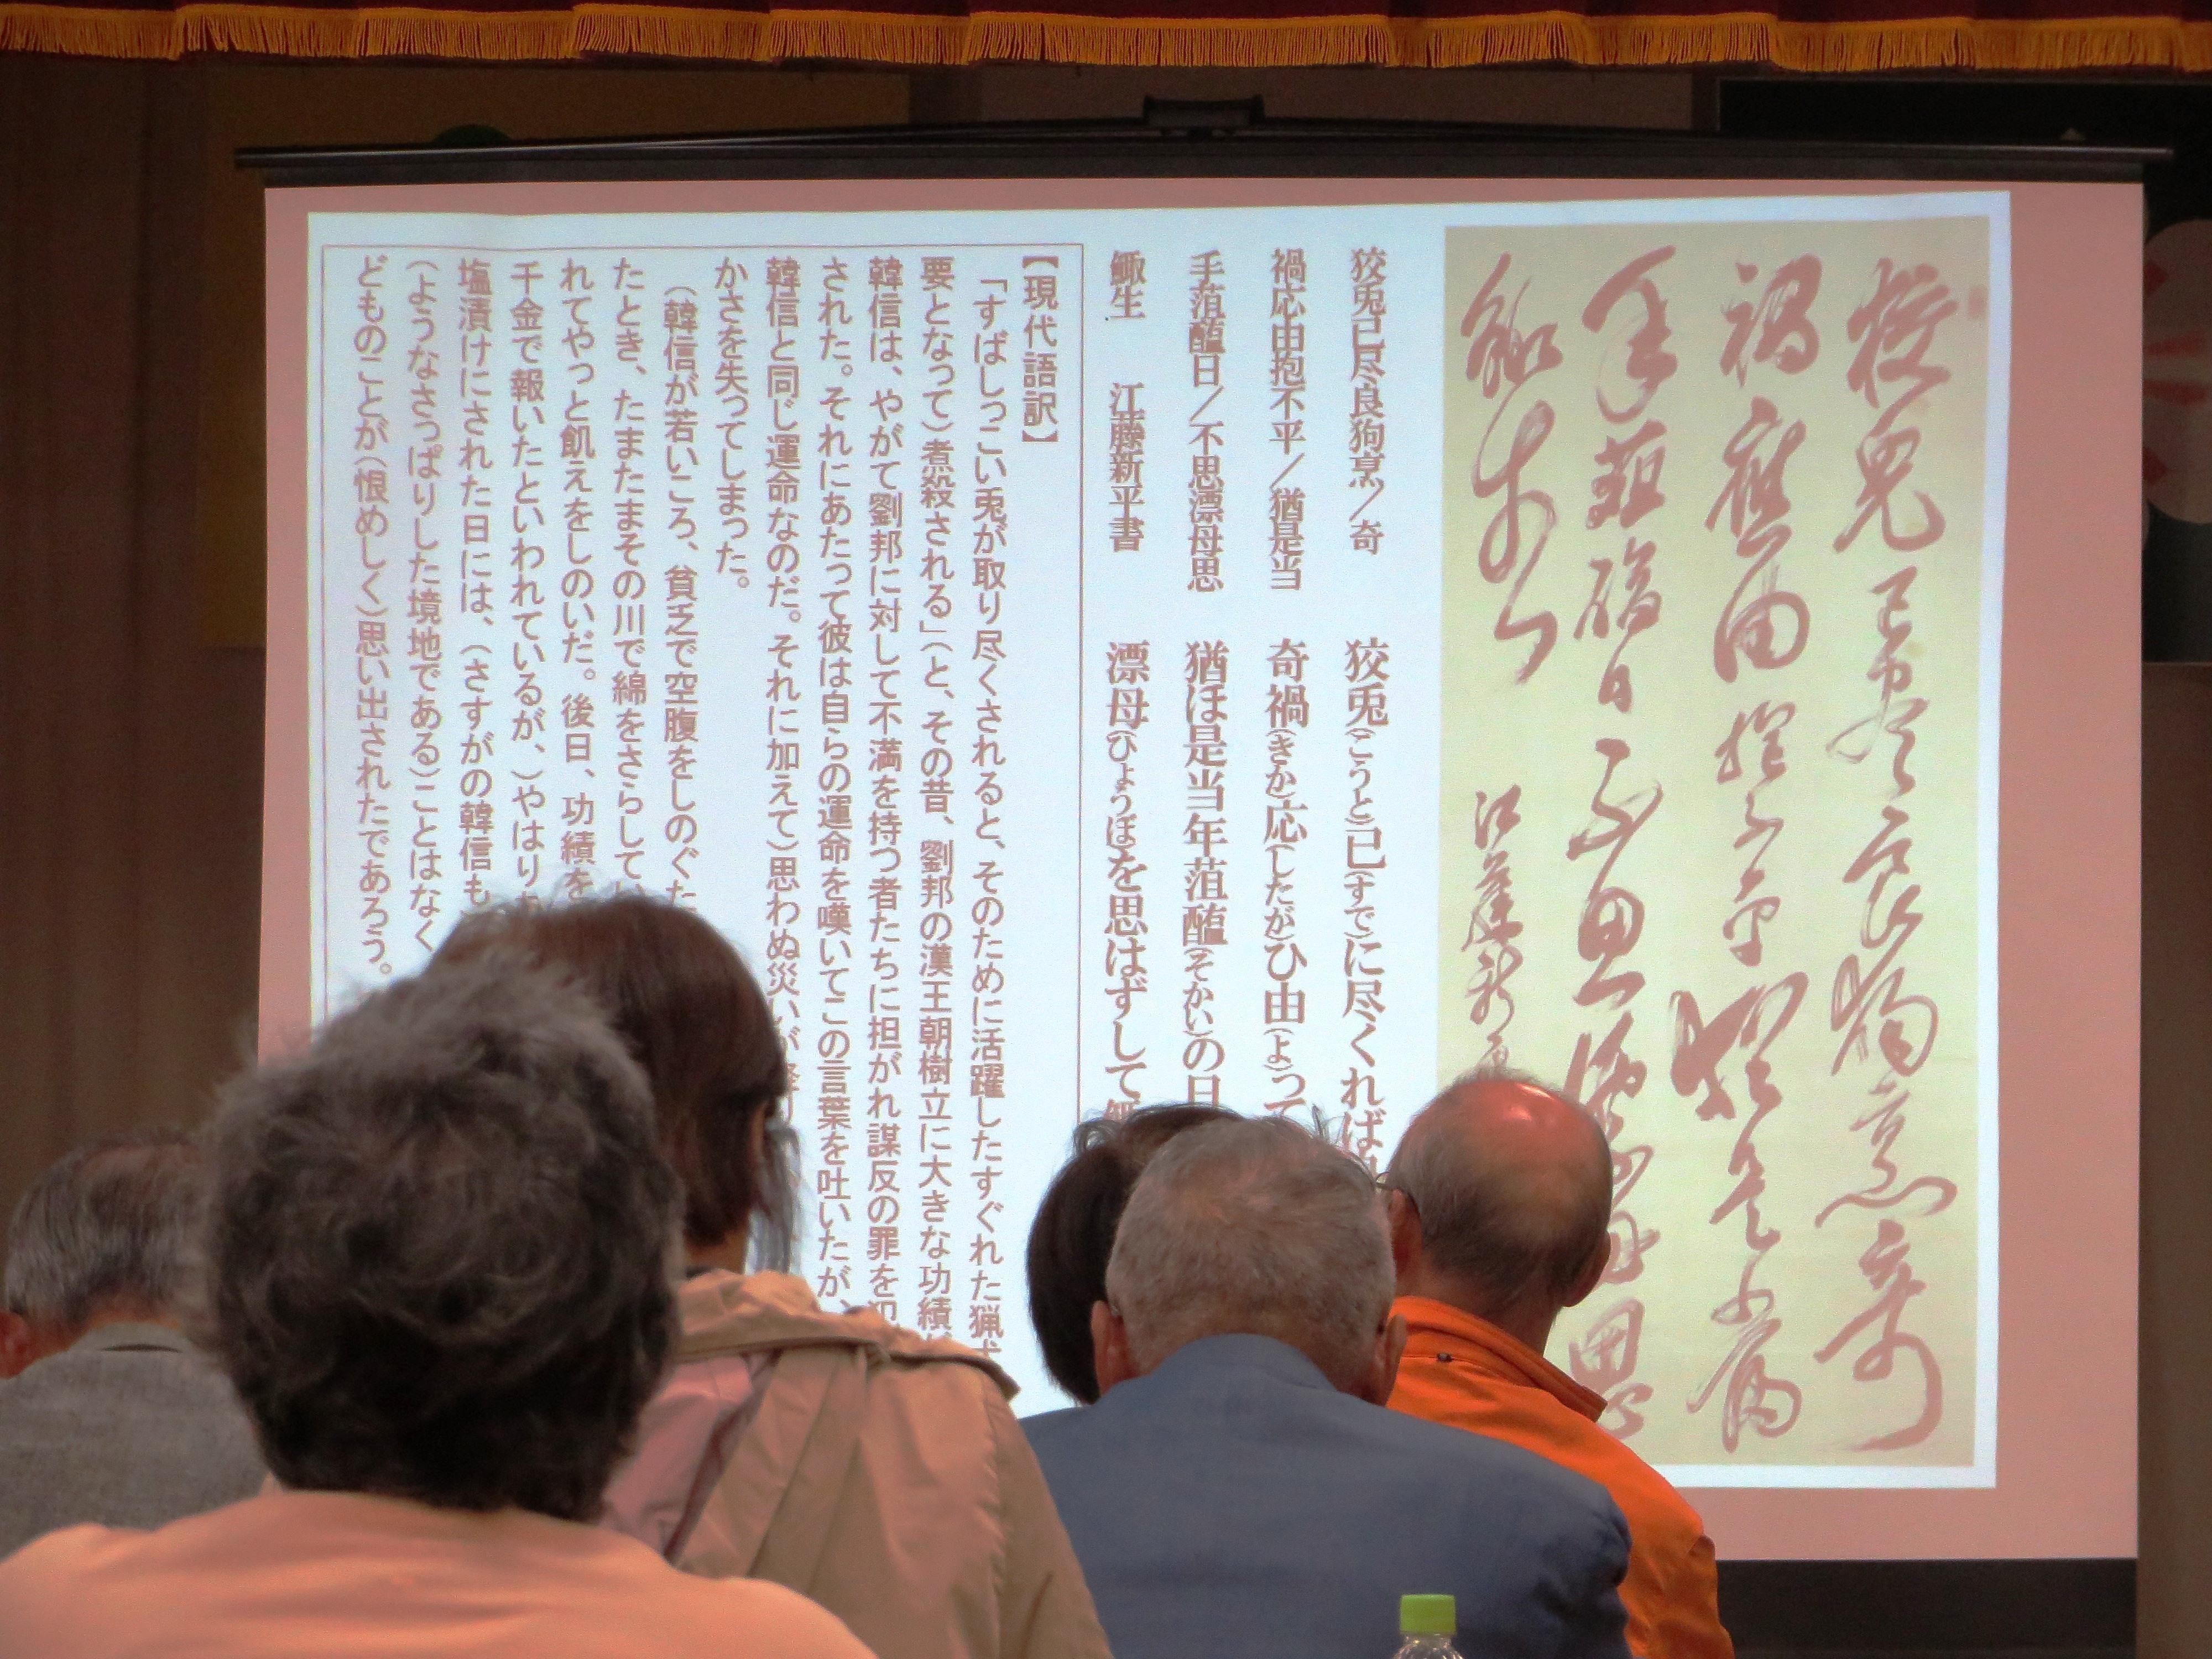 狡兎已尽良狗烹奇
禍應由抱不平猶是當
年菹醢日不思漂母思
鯫生 江藤新
狡兎已尽良狗烹／奇
禍応由抱不平／猶是当
手菹醢日／不思漂母思
鯫生 江藤新平書
狡兎(こうと)已(すで)に尽くれば
奇禍(きか)応(したが)ひ由(よ)って
猶ほ是当年菹醢(そかい)の日
漂母(ひょうぼ)を思はずして
【現代語訳】
「すばしっこい兎が取り尽くされると、そのために活躍したすぐれた猟犬
要となって)煮殺される」(と、その昔、劉邦の漢王朝樹立に大きな功績
韓信は、やがて劉邦に対して不満を持つ者たちに担がれ謀反の罪を
された。それにあたって彼は自らの運命を嘆いてこの言葉を吐いたが、
韓信と同じ運命なのだ。それに加えて)思わぬ災いが
かさを失ってしまった。
(韓信が若いころ、貧乏で空腹をしのぐ
たとき、たまたまその川で綿をさらして
れてやっと飢えをしのいだ。後日、功績を
千金で報いたといわれているが、)やはり
塩漬けにされた日には、(さすがの韓信も
(ようなさっぱりした境地である)ことはなく
どものことが(恨めしく)思い出されたであろう。